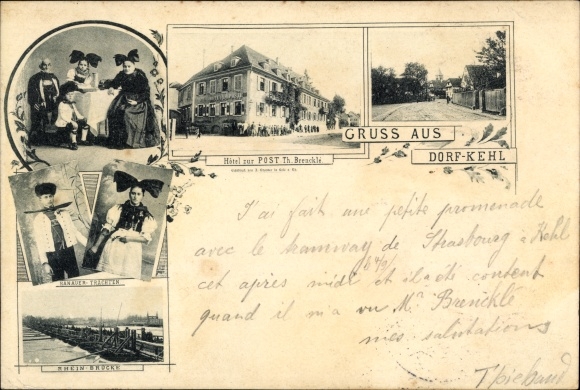 Hôtel zur POST Th. Brencklé.
GRUSS AUS
DORF-KEHL
HANAUER-TRACHTEN.
RHEIN-BRÜCKE
J'ai fait une petite promenade
avec le tramway de Strasbourg à Kehl
cet après midi et il a été content
quand il m'a vu Mr Brencklé
mes salutations
Thiébaud